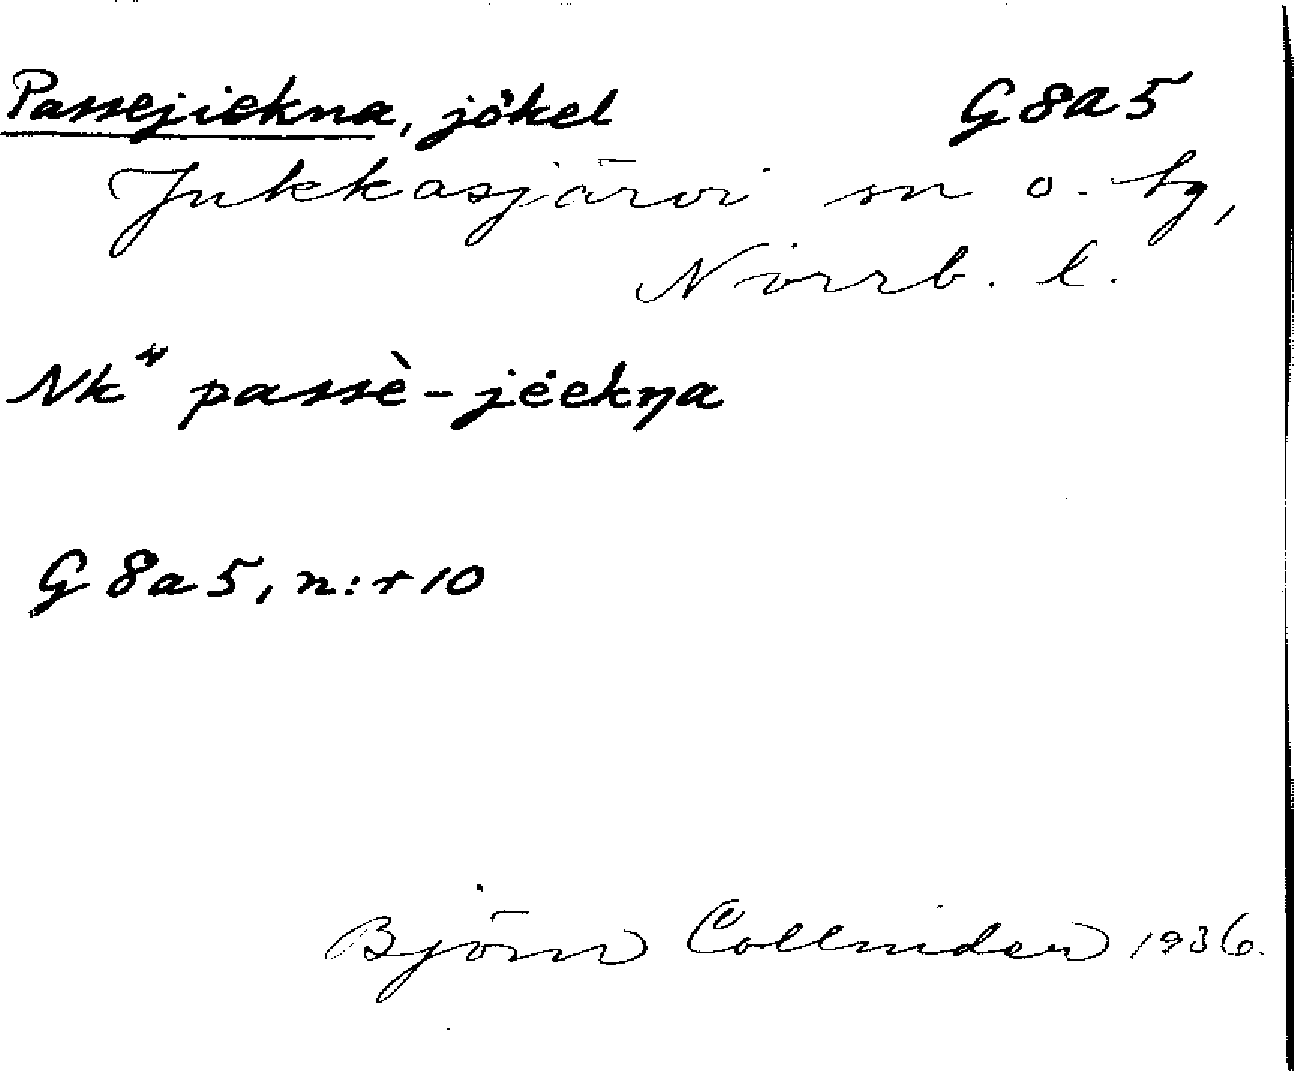 Passejiekna, jökel G8a5
Jukkasjärvi sn o. tg,
Norrb. l.
Nk passè-jėekŋa
G8a5, n:r 10
Björn Collinder 1936.